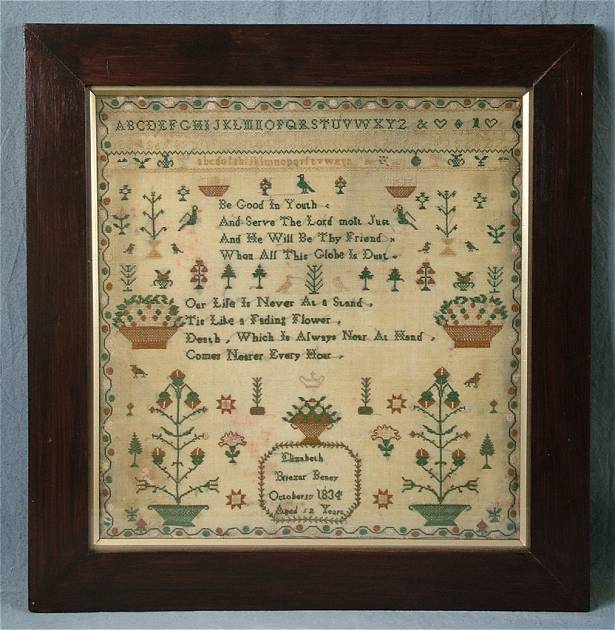 ABCDEFGHIJKLMNOPQRSTUVWXYZ &
abcdefghijklmnopqrstvwxyz
Be Good In Youth
And Serve The Lord most Just
And He Will Be Thy Friend
When All This Globe Is Dust
Our Life Is Never At a Stand
Tis Like a Fading Flower
Death, Which Is Always Near At Hand
Comes Nearer Every Hour
Elizabeth
Briezar Beney
October 1834
Aged 12 Years